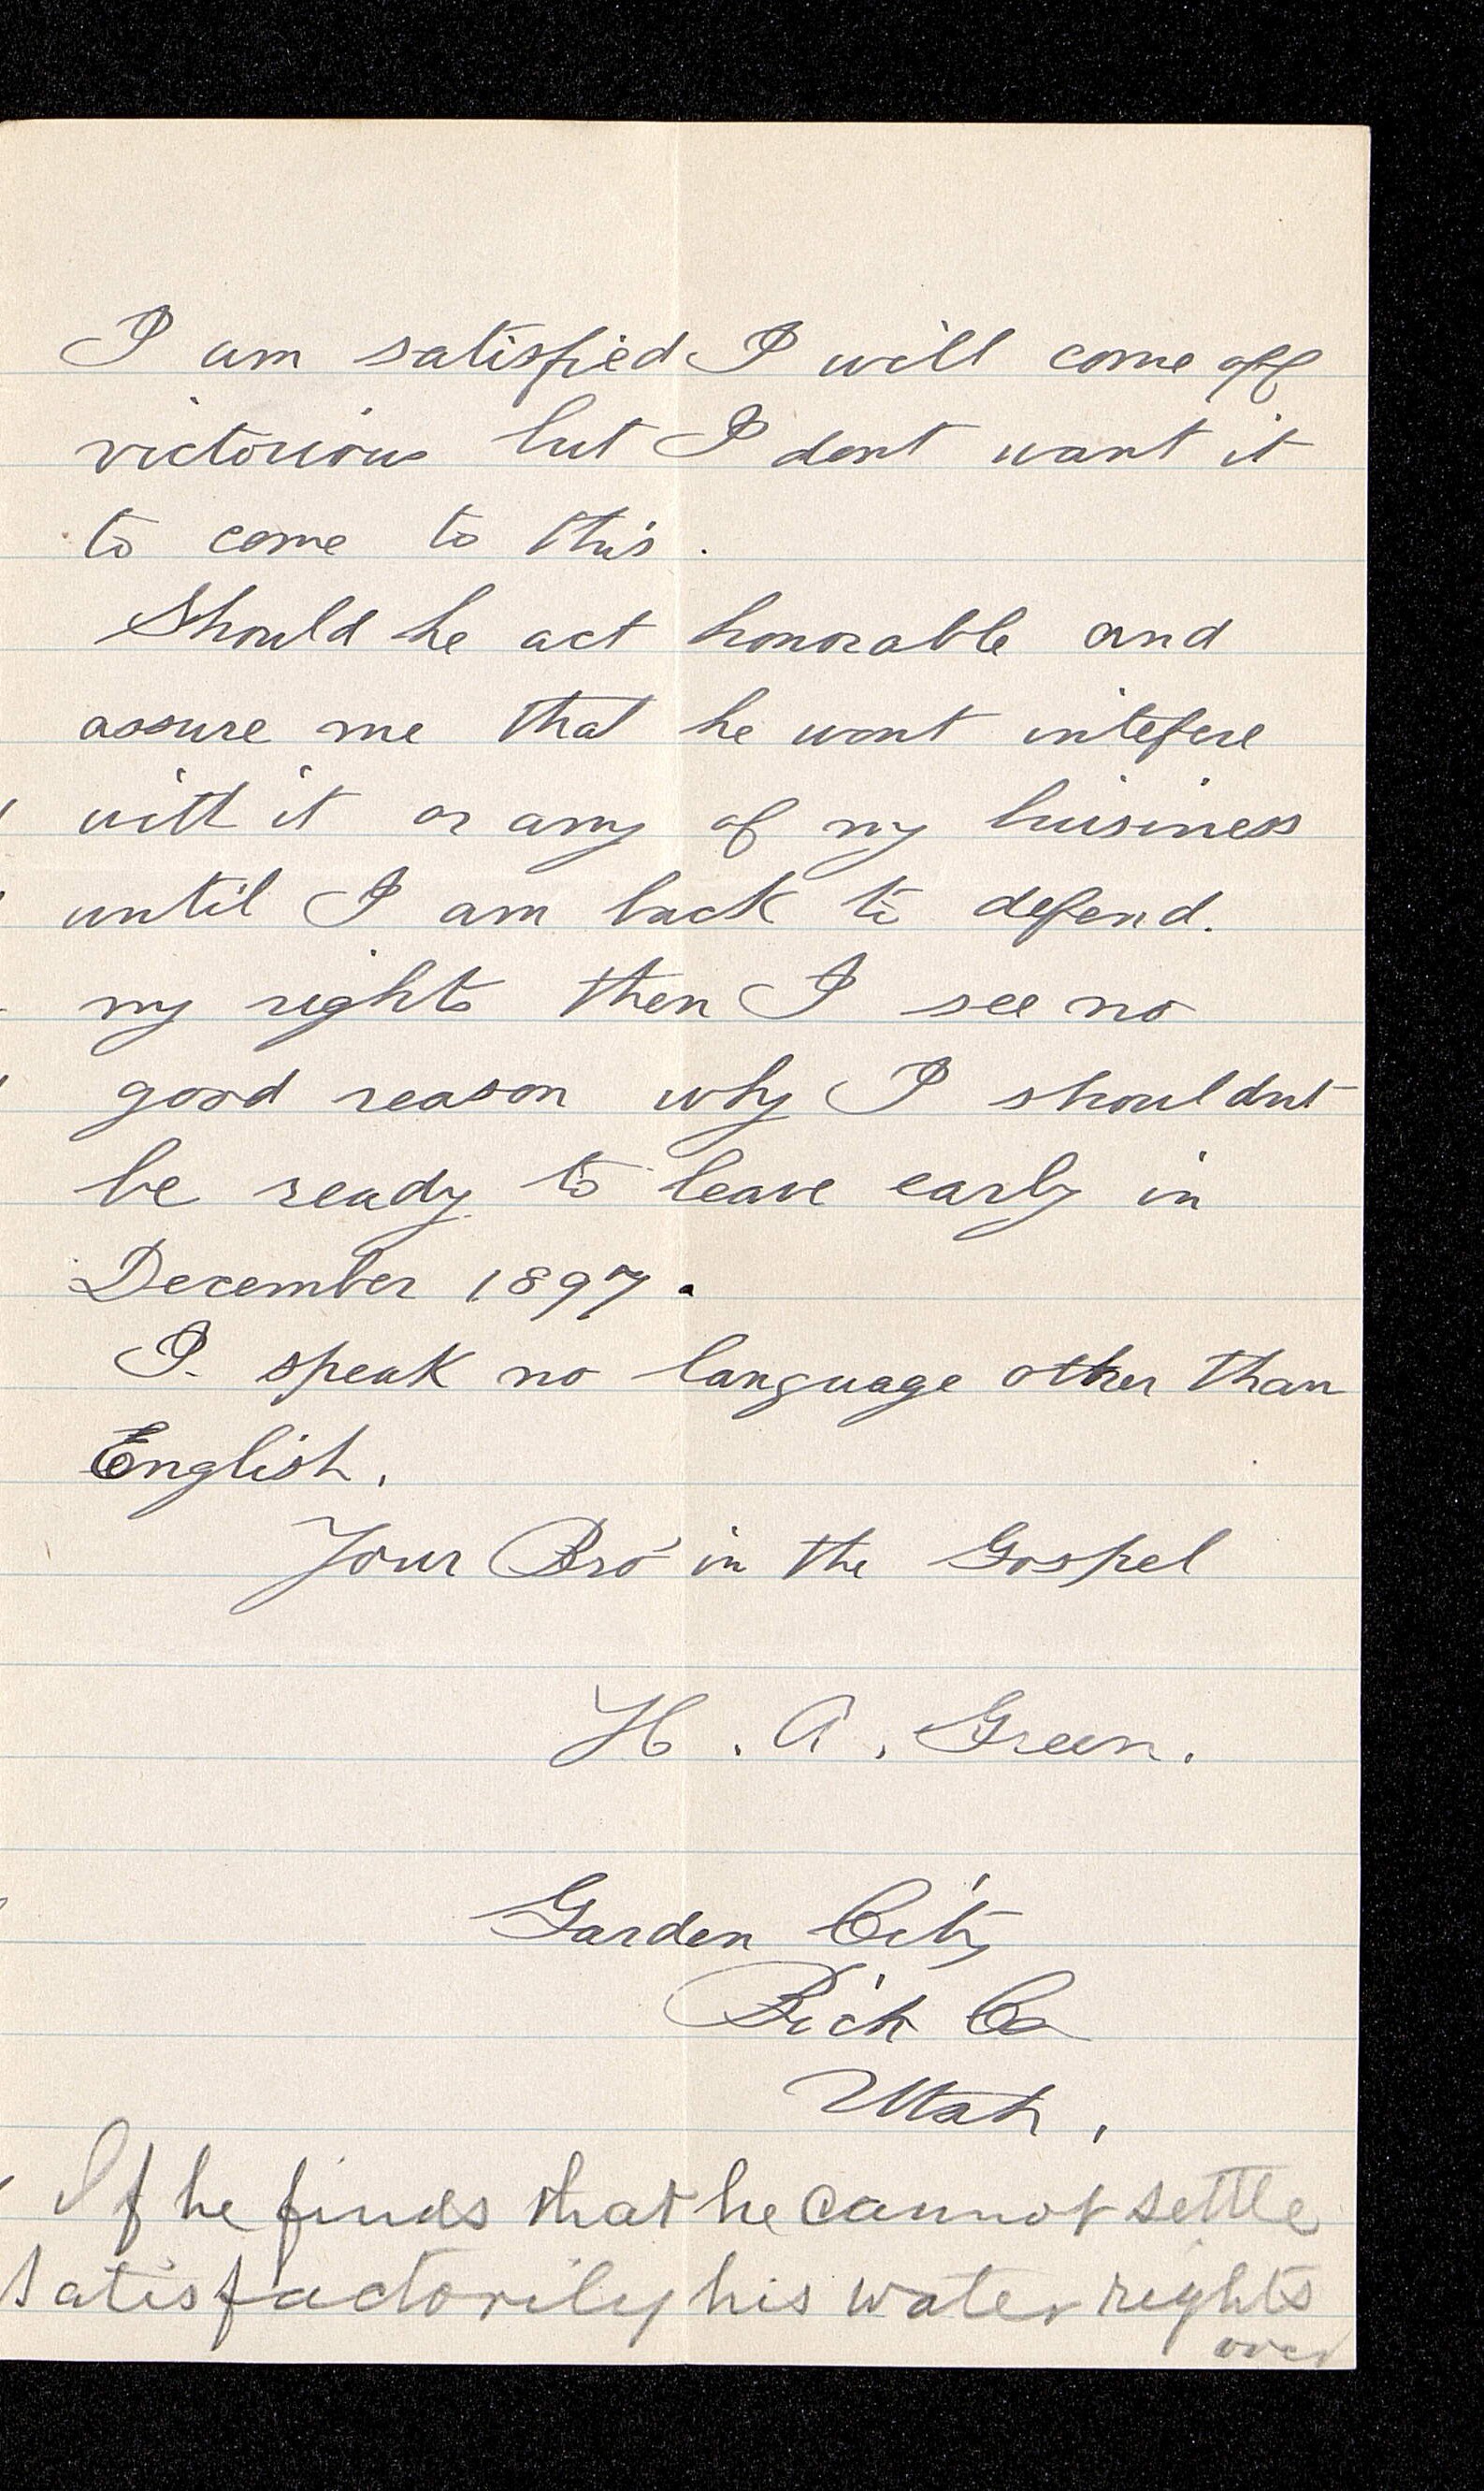 I am satisfied I will come off
victorious but I dont want it
to come to this.
Should he act honorable and
assure me that he wont intefere
with it or any of my buisiness
until I am back to defend.
my rights then I see no
good reason why I shouldnt
be ready to leave early in
December 1897.
I speak no language other than
English.
Your Bro in the Gospel
H. A. Green.
Garden City
Rich Co
Utah.
If he finds that he cannot settle
satisfactorily his water rights
over